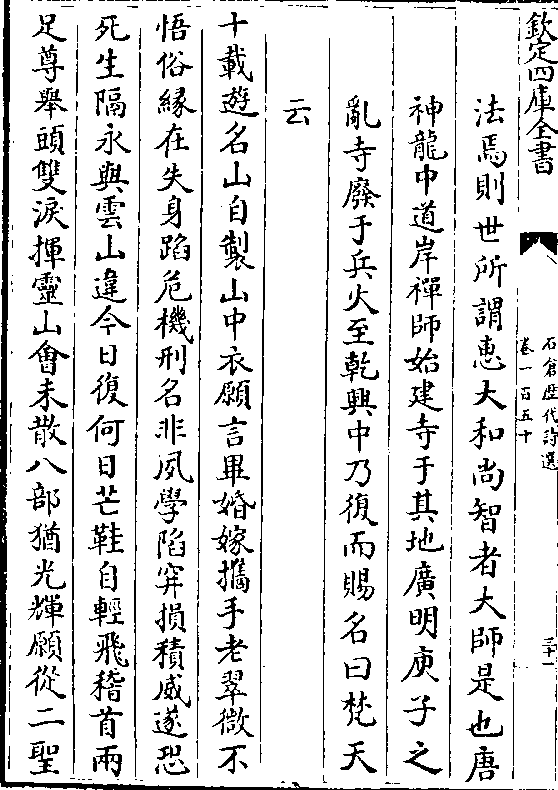 欽定四庫全書
石倉歷代詩選
卷一百五十
三十一
法焉則世所謂惠大和尚智者大師是也唐
神龍中道岸禪師始建寺于其地廣明庚子之
亂寺廢于兵火至乾興中乃復而賜名曰梵天
云
十載遊名山自製山中衣願言畢婚嫁攜手老翠微不
悟俗緣在失身蹈危機刑名非夙學陷穽損積威遂恐
死生隔永與雲山違今日復何日芒鞋自輕飛稽首兩
足尊舉頭雙淚揮靈山會未散八部猶光輝願從二聖